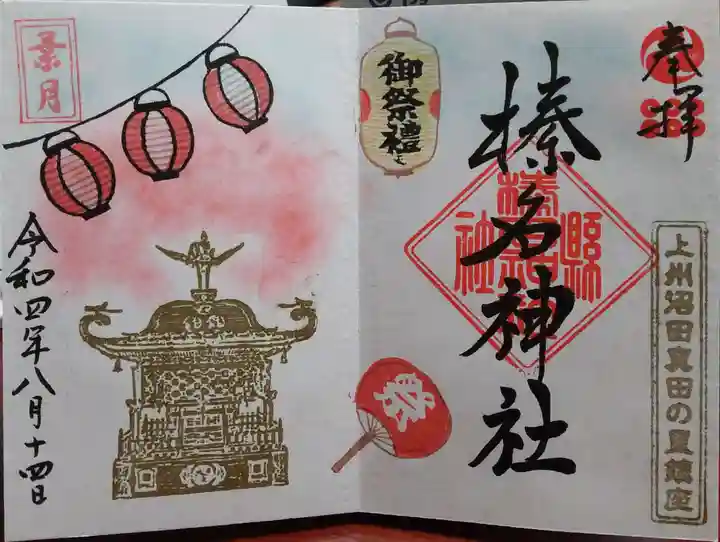 奉拝
上州沼田真田の里鎮座
榛名神社
御祭禮
祭
葉月
令和四年八月十四日